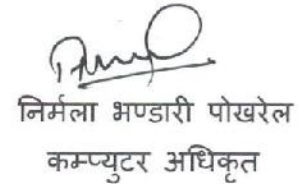 निर्मला भण्डारी पोखरेल
कम्प्युटर अधिकृत